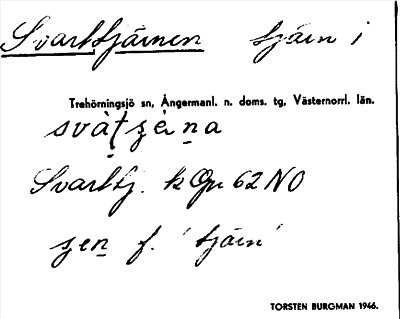 Svarttjärnen tjärn i
Trehörningsjö sn, Ångermanl. n. doms. tg, Västernorrl. län.
Svarttj. k Gru 62 NO
f. 'tjärn'
TORSTEN BURGMAN 1946.